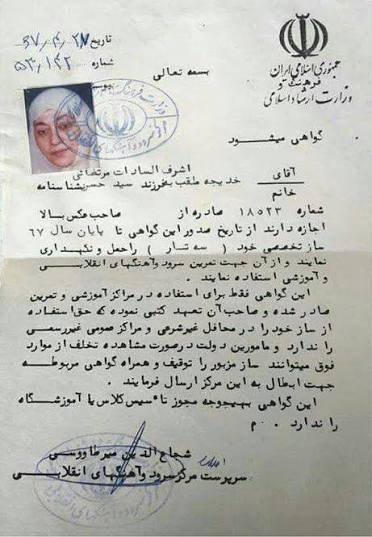 تاریخ ۶۷/۴/۲۷
شماره ۵۳/۱۴۲
بسمه تعالی
جمهوری اسلامی ایران
وزارت فرهنگ و ارشاد اسلامی
گواهی میشود
آقای
خانم
اشرف السادات مرتضائی
خدیجه ملقب به فرزند سید حسین شناسنامه
شماره ۱۸۵۲۳ صادره از صاحب عکس بالا
اجازه دارند از تاریخ صدور این گواهی تا پایان سال ۶۷
ساز تخصصی خود ( سه تار ) را حمل و نگهداری
نمایند و از آن جهت تمرین سرود و آهنگهای انقلابی
و آموزشی استفاده نمایند .
این گواهی فقط برای استفاده در مراکز آموزشی و تمرین
صادر شده و صاحب آن تعهد کتبی نموده که حق استفاده
از ساز خود را در محافل غیرشرعی و مراکز عمومی غیررسمی
را ندارد و مامورین دولت درصورت مشاهده تخلف از موارد
فوق میتوانند ساز مزبور را توقیف و همراه گواهی مربوطه
جهت ابطال به این مرکز ارسال فرمایند .
این گواهی بهیچوجه مجوز تاسیس کلاس یا آموزشگاه
را ندارد . م
شجاع الدین میرطاووسی
سرپرست مرکز سرود و آهنگهای انقلابی